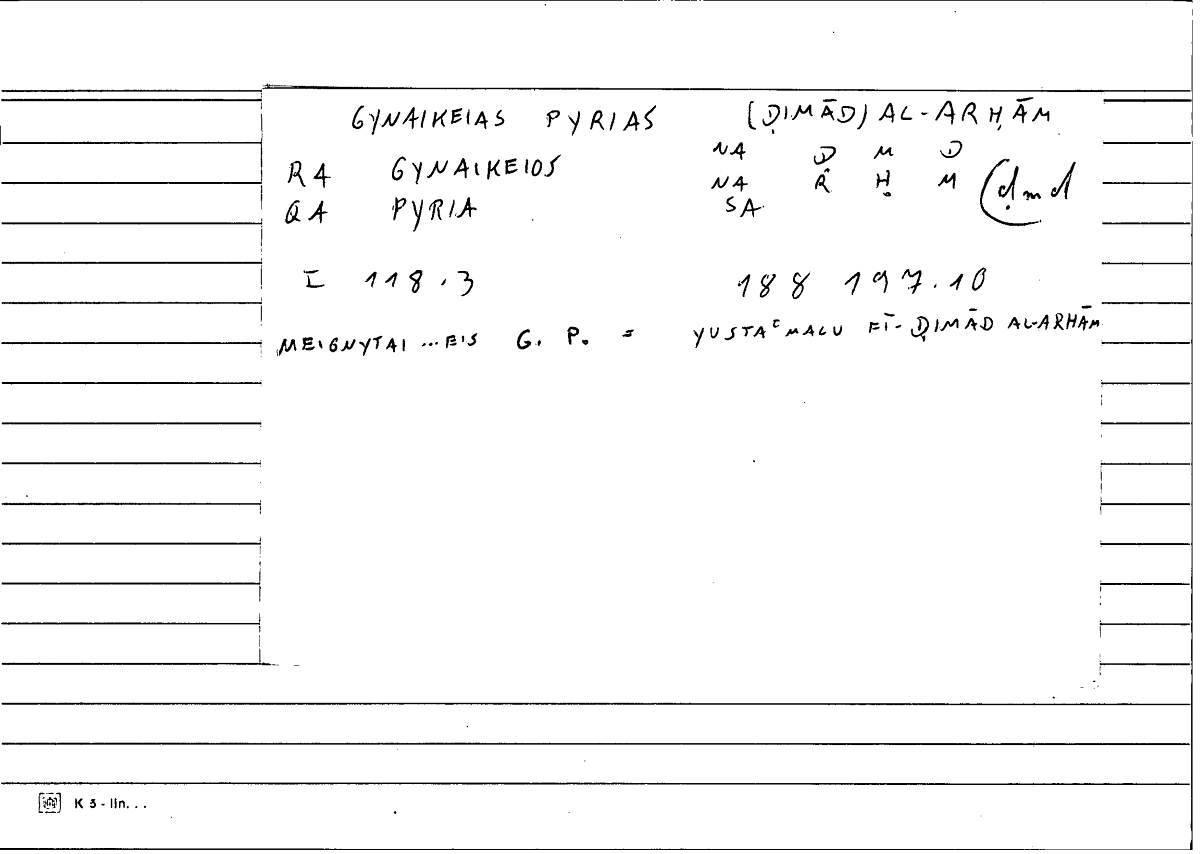 GYNAIKEIAS PYRIAS (ḌIMĀD) AL-ARḤĀM
NA Ḍ M D
RA GYNAIKEIOS NA R Ḥ M (ḍmd
QA PYRIA SA
I 118.3 188 197.10
MEIGNYTAI ...EIS G. P. = YUSTAʿMALU FĪ- ḌIMĀD AL-ARḤĀM
K 3 - lin. . .